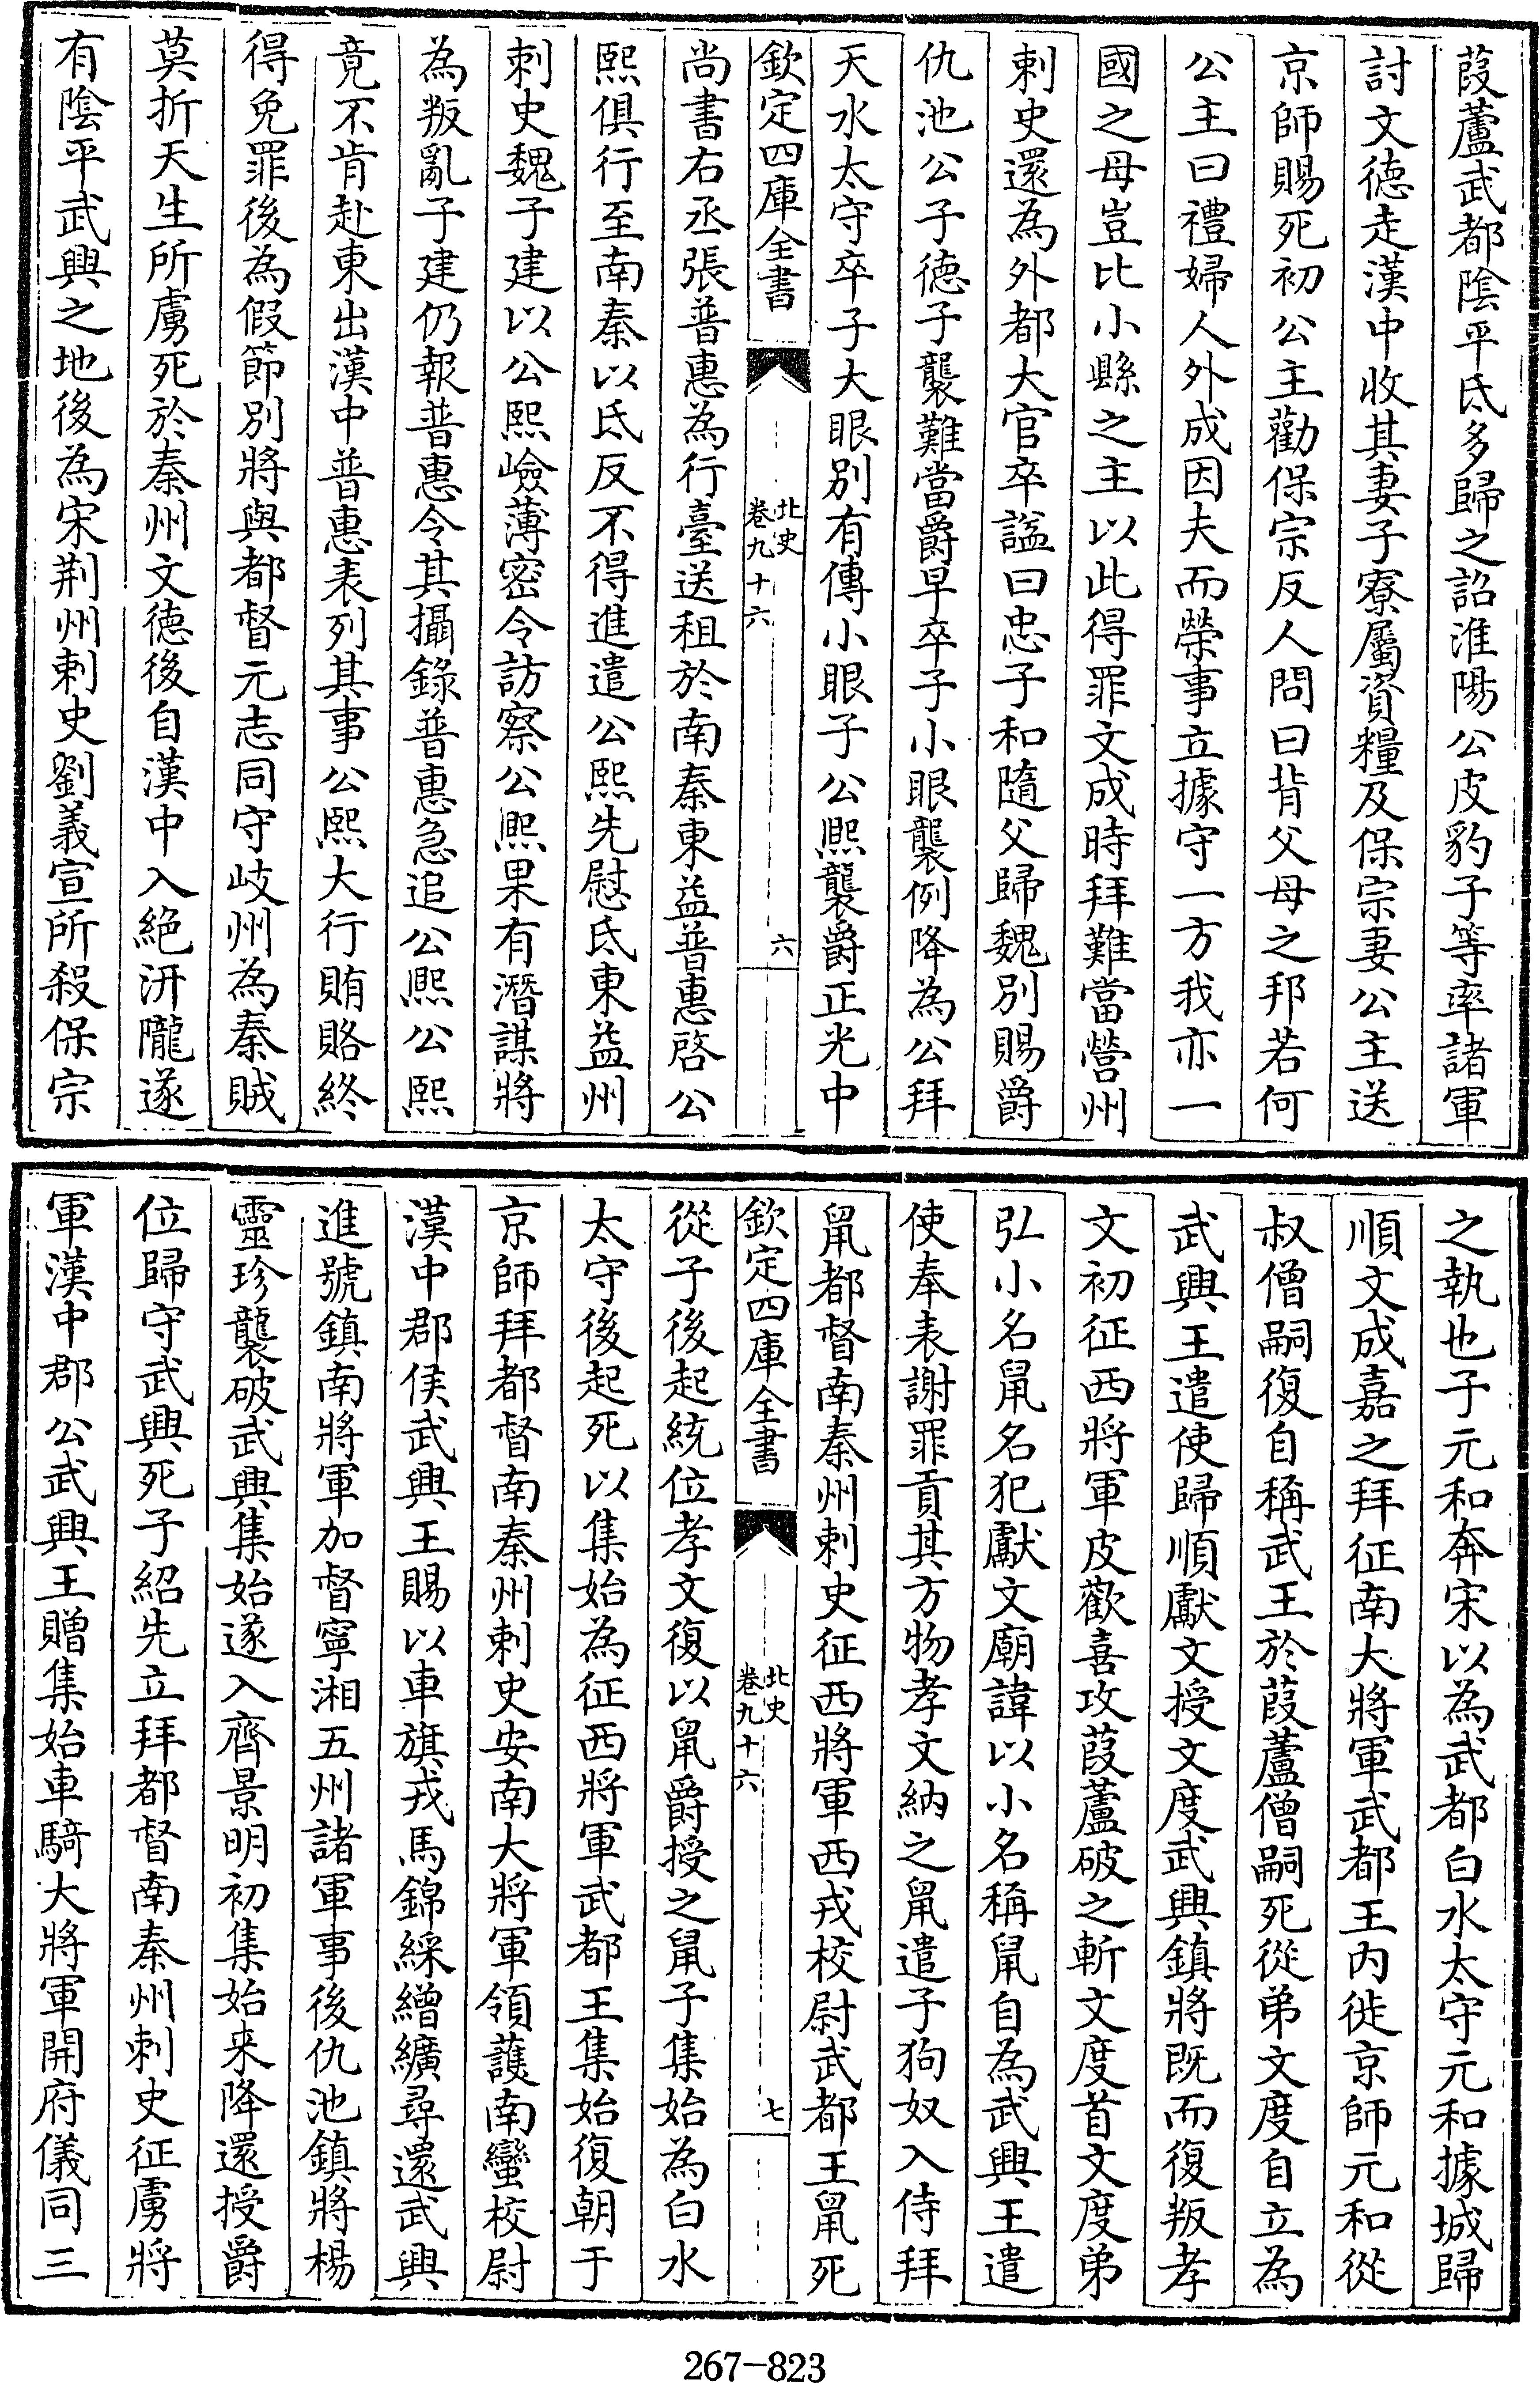 葭蘆武都陰平氐多歸之詔淮陽公皮豹子等率諸軍
討文徳走漢中收其妻子寮屬資糧及保宗妻公主送
京師賜死初公主勸保宗反人問曰背父母之邦若何
公主曰禮婦人外成因夫而榮事立據守一方我亦一
國之母豈比小縣之主以此得罪文成時拜難當營州
刺史還為外都大官卒諡曰忠子和隨父歸魏別賜爵
仇池公子徳子襲難當爵早卒子小眼襲例降為公拜
天水太守卒子大眼別有傳小眼子公熈襲爵正光中
欽定四庫全書
北史
卷九十六
六
尚書右丞張普惠為行臺送租於南秦東益普惠啓公
熙俱行至南秦以氐反不得進遣公熙先慰氐東益州
刺史魏子建以公熙嶮薄密令訪察公熈果有潛謀將
為叛亂子建仍報普惠令其攝錄普惠急追公熈公熙
竟不肯赴東出漢中普惠表列其事公熙大行賄賂終
得免罪後為假節別將與都督元志同守岐州為秦賊
莫折天生所虜死於秦州文徳後自漢中入絶汧隴遂
有陰平武興之地後為宋荆州刺史劉義宣所殺保宗
之執也子元和奔宋以為武都白水太守元和據城歸
順文成嘉之拜征南大將軍武都王内徙京師元和從
叔僧嗣復自稱武王於葭蘆僧嗣死從弟文度自立為
武興王遣使歸順獻文授文度武興鎮將既而復叛孝
文初征西將軍皮歡喜攻葭蘆破之斬文度首文度弟
弘小名鼠名犯獻文廟諱以小名稱鼠自為武興王遣
使奉表謝罪貢其方物孝文納之鼠遣子狗奴入侍拜
鼠都督南秦州刺史征西將軍西戎校尉武都王鼠死
欽定四庫全書
北史
卷九十六
七
從子後起統位孝文復以鼠爵授之鼠子集始為白水
太守後起死以集始為征西將軍武都王集始復朝于
京師拜都督南秦州刺史安南大將軍領護南蠻校尉
漢中郡侯武興王賜以車旗戎馬錦綵繒纊尋還武興
進號鎮南將軍加督寧湘五州諸軍事後仇池鎮將楊
靈珍襲破武興集始遂入齊景明初集始来降還授爵
位歸守武興死子紹先立拜都督南秦州刺史征虜將
軍漢中郡公武興王贈集始車騎大將軍開府儀同三
267-823